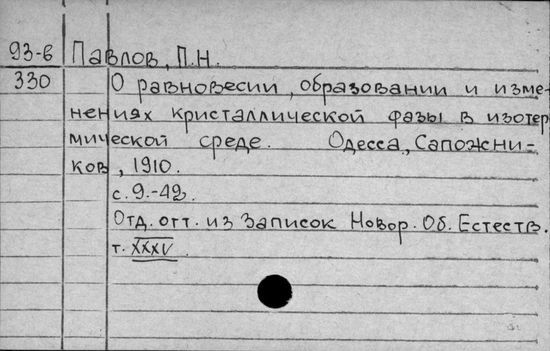 93-6 Павлов, П.Н.
330 О равновесии, образовании и изме-
нениях кристаллической фазы в изотер
мической среде. Одесса, Сапожни-
ков, 1910.
с. 9.-42.
Отд. отт. из Записок Новор. Об. Естеств.
т. XXXV